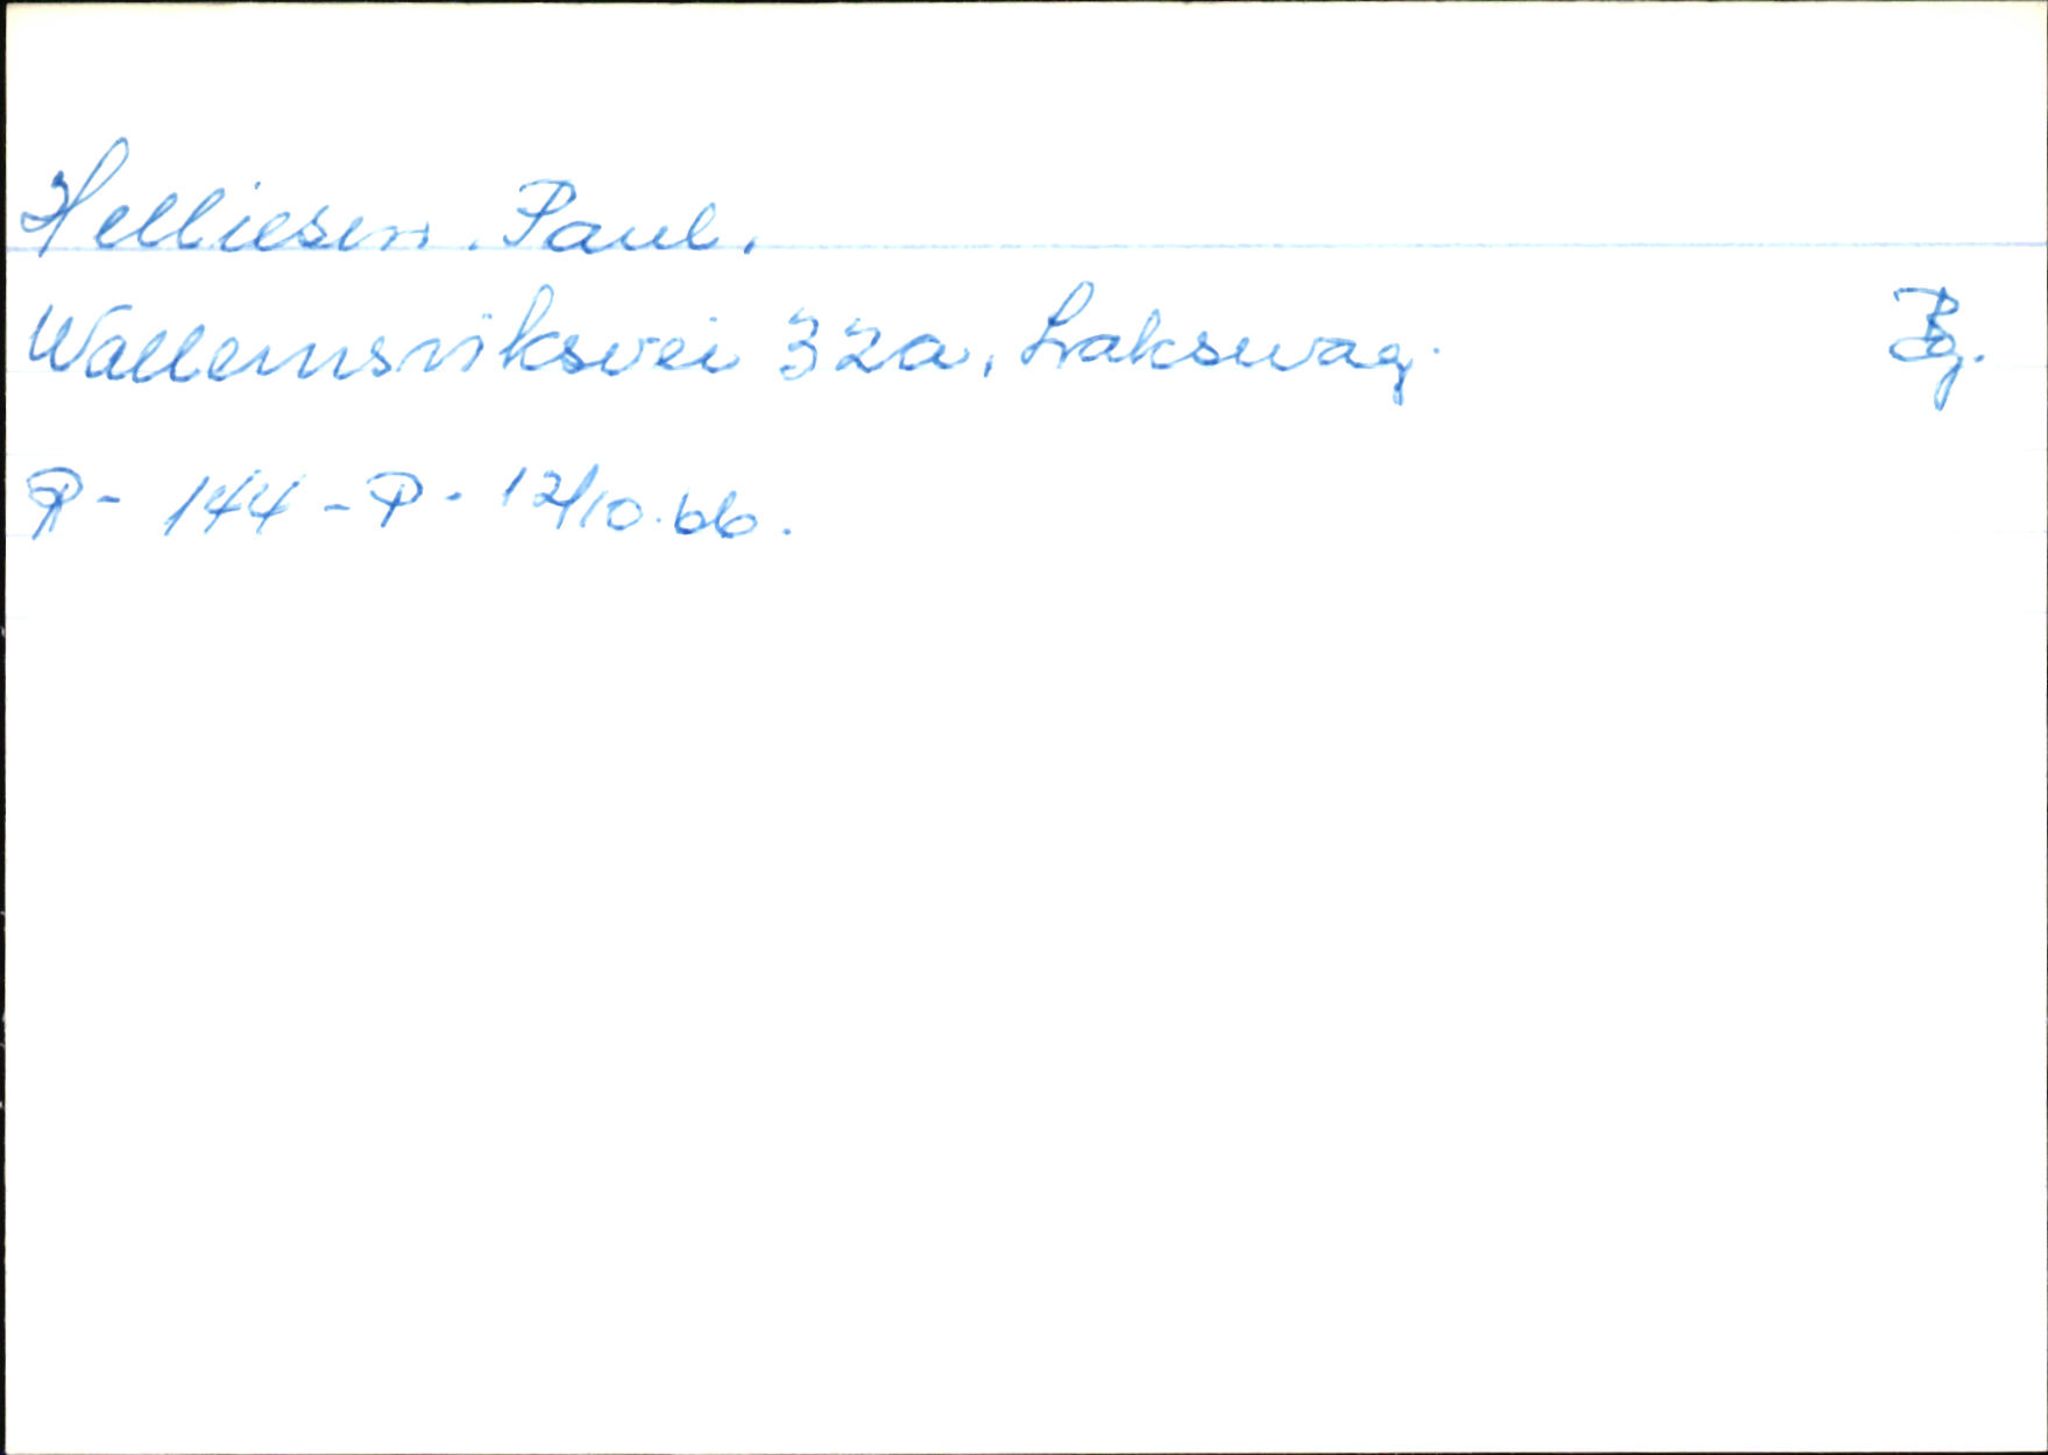 Helliesen. Paul.
Wallemsviksvei 32a, Laksevag. Bg.
R- 144 - P - 12/10.66.